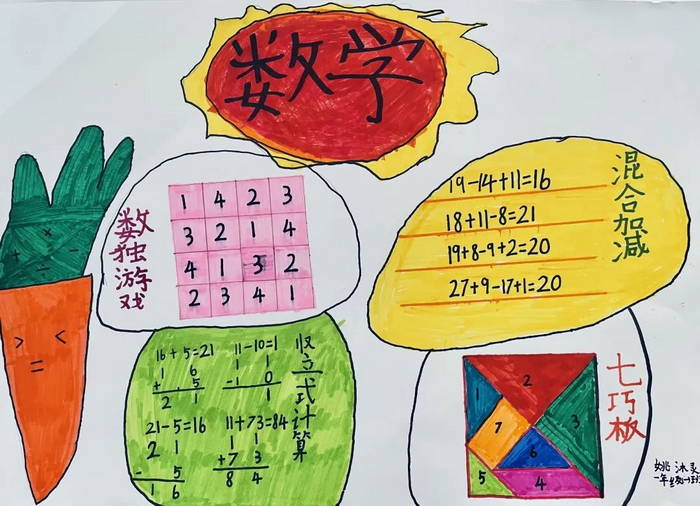 数学
数独游戏
1 4 2 3
3 2 1 4
4 1 3 2
2 3 4 1
混合加减
19-14+11=16
18+11-8=21
19+8-9+2=20
27+9-17+1=20
竖立式计算
16+5=21
1 6
+ . 5
2 1
11-10=1
1 1
-1 0
1
21-5=16
2 1
- 5
1 6
11+73=84
1 1
+7 3
8 4
七巧板
1
2
3
7
6
5
4
× + ÷ −
> <
=
姚沐灵